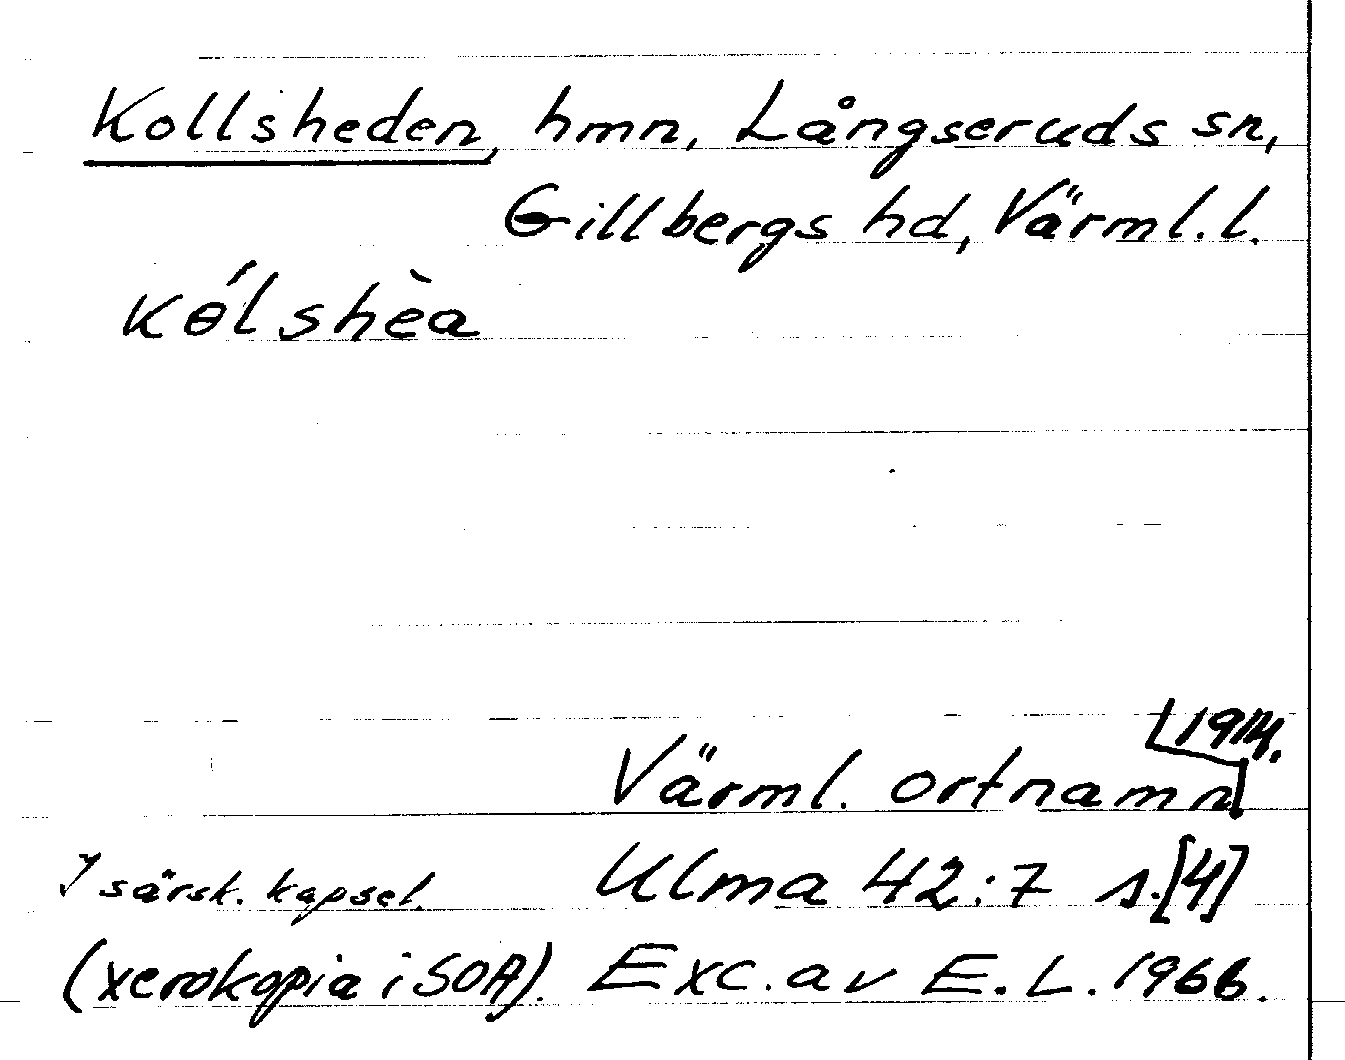 Kollsheden, hmn, Långseruds sn,
Gillbergs hd, Värml. l.
kɵ́lshèa
1914.
Värml. ortnamn
I särsk. kapsel. Ulma 42:7 s.[4]
(xerokopia i SOA). Exc. av E. L. 1966.